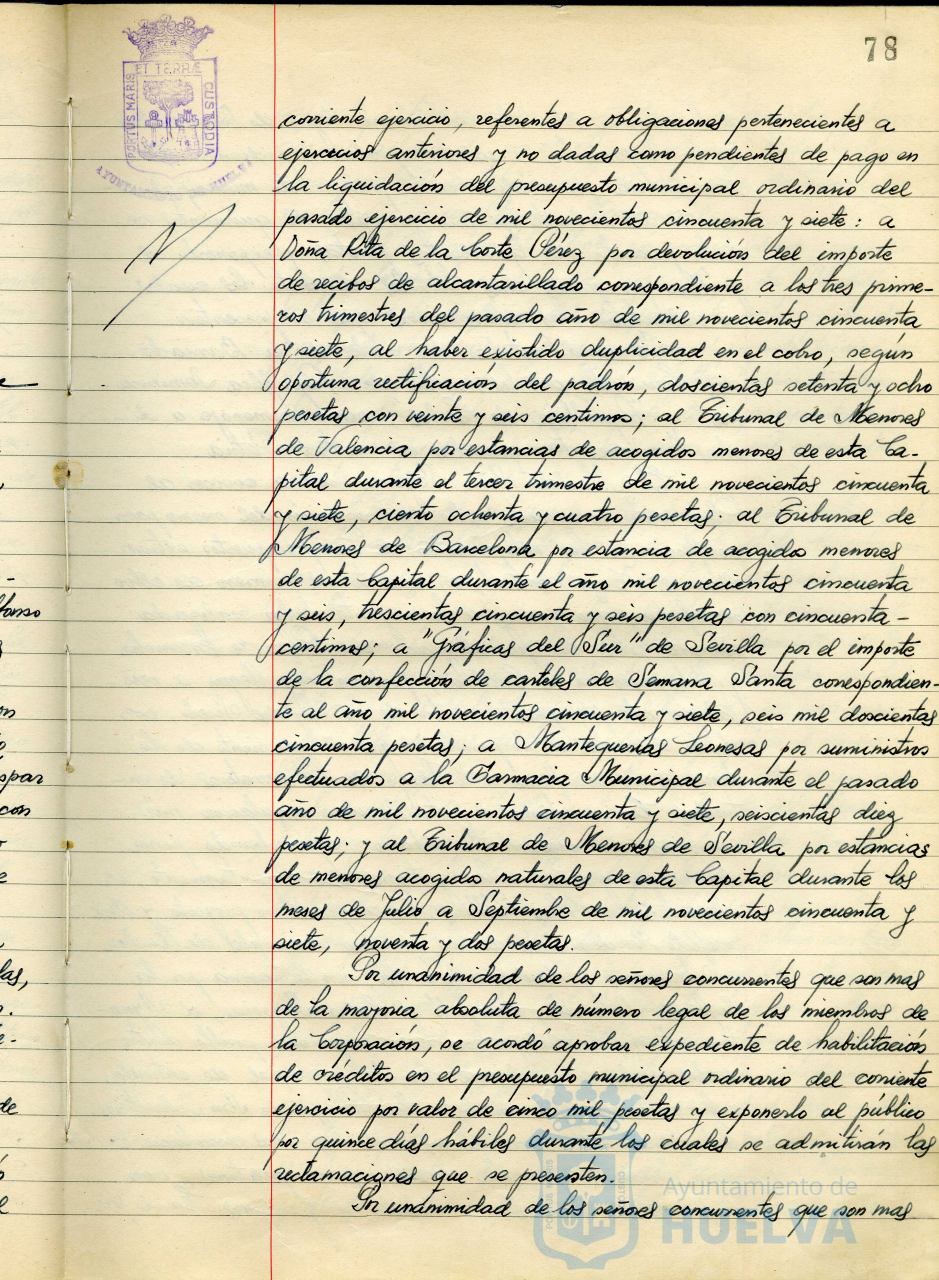 78
ET TERRÆ
PORTUS MARIS
CUSTODIA
corriente ejercicio, referentes a obligaciones pertenecientes a
ejercicios anteriores y no dadas como pendientes de pago en
la liquidación del presupuesto municipal ordinario del
pasado ejercicio de mil novecientos cincuenta y siete: a
Doña Rita de la Corte Pérez por devolución del importe
de recibos de alcantarillado correspondiente a los tres prime-
ros trimestres del pasado año de mil novecientos cincuenta
y siete, al haber existido duplicidad en el cobro, según
oportuna rectificación del padrón, doscientas setenta y ocho
pesetas con veinte y seis centimos; al Tribunal de Menores
de Valencia por estancias de acogidos menores de esta Ca-
pital durante el tercer trimestre de mil novecientos cincuenta
y siete, ciento ochenta y cuatro pesetas; al Tribunal de
Menores de Barcelona por estancia de acogidos menores
de esta Capital durante el año mil novecientos cincuenta
y seis, trescientas cincuenta y seis pesetas con cincuenta-
centimos; a "Gráficas del Sur" de Sevilla por el importe
de la confección de carteles de Semana Santa correspondien-
te al año mil novecientos cincuenta y siete, seis mil doscientas
cincuenta pesetas; a Mantequerias Leonesas por suministros
efectuados a la Farmacia Municipal durante el pasado
año de mil novecientos cincuenta y siete, seiscientas diez
pesetas; y al Tribunal de Menores de Sevilla por estancias
de menores acogidos naturales de esta Capital durante los
meses de Julio a Septiembre de mil novecientos cincuenta y
siete, noventa y dos pesetas.
Por unanimidad de los señores concurrentes que son mas
de la mayoria absoluta de número legal de los miembros de
la Corporación, se acordó aprobar expediente de habilitación
de créditos en el presupuesto municipal ordinario del corriente
ejercicio por valor de cinco mil pesetas y exponerlo al público
por quince días hábiles durante los cuales se admitirán las
reclamaciones que se presenten.
Por unanimidad de los señores concurrentes que son mas
Ayuntamiento de
HUELVA